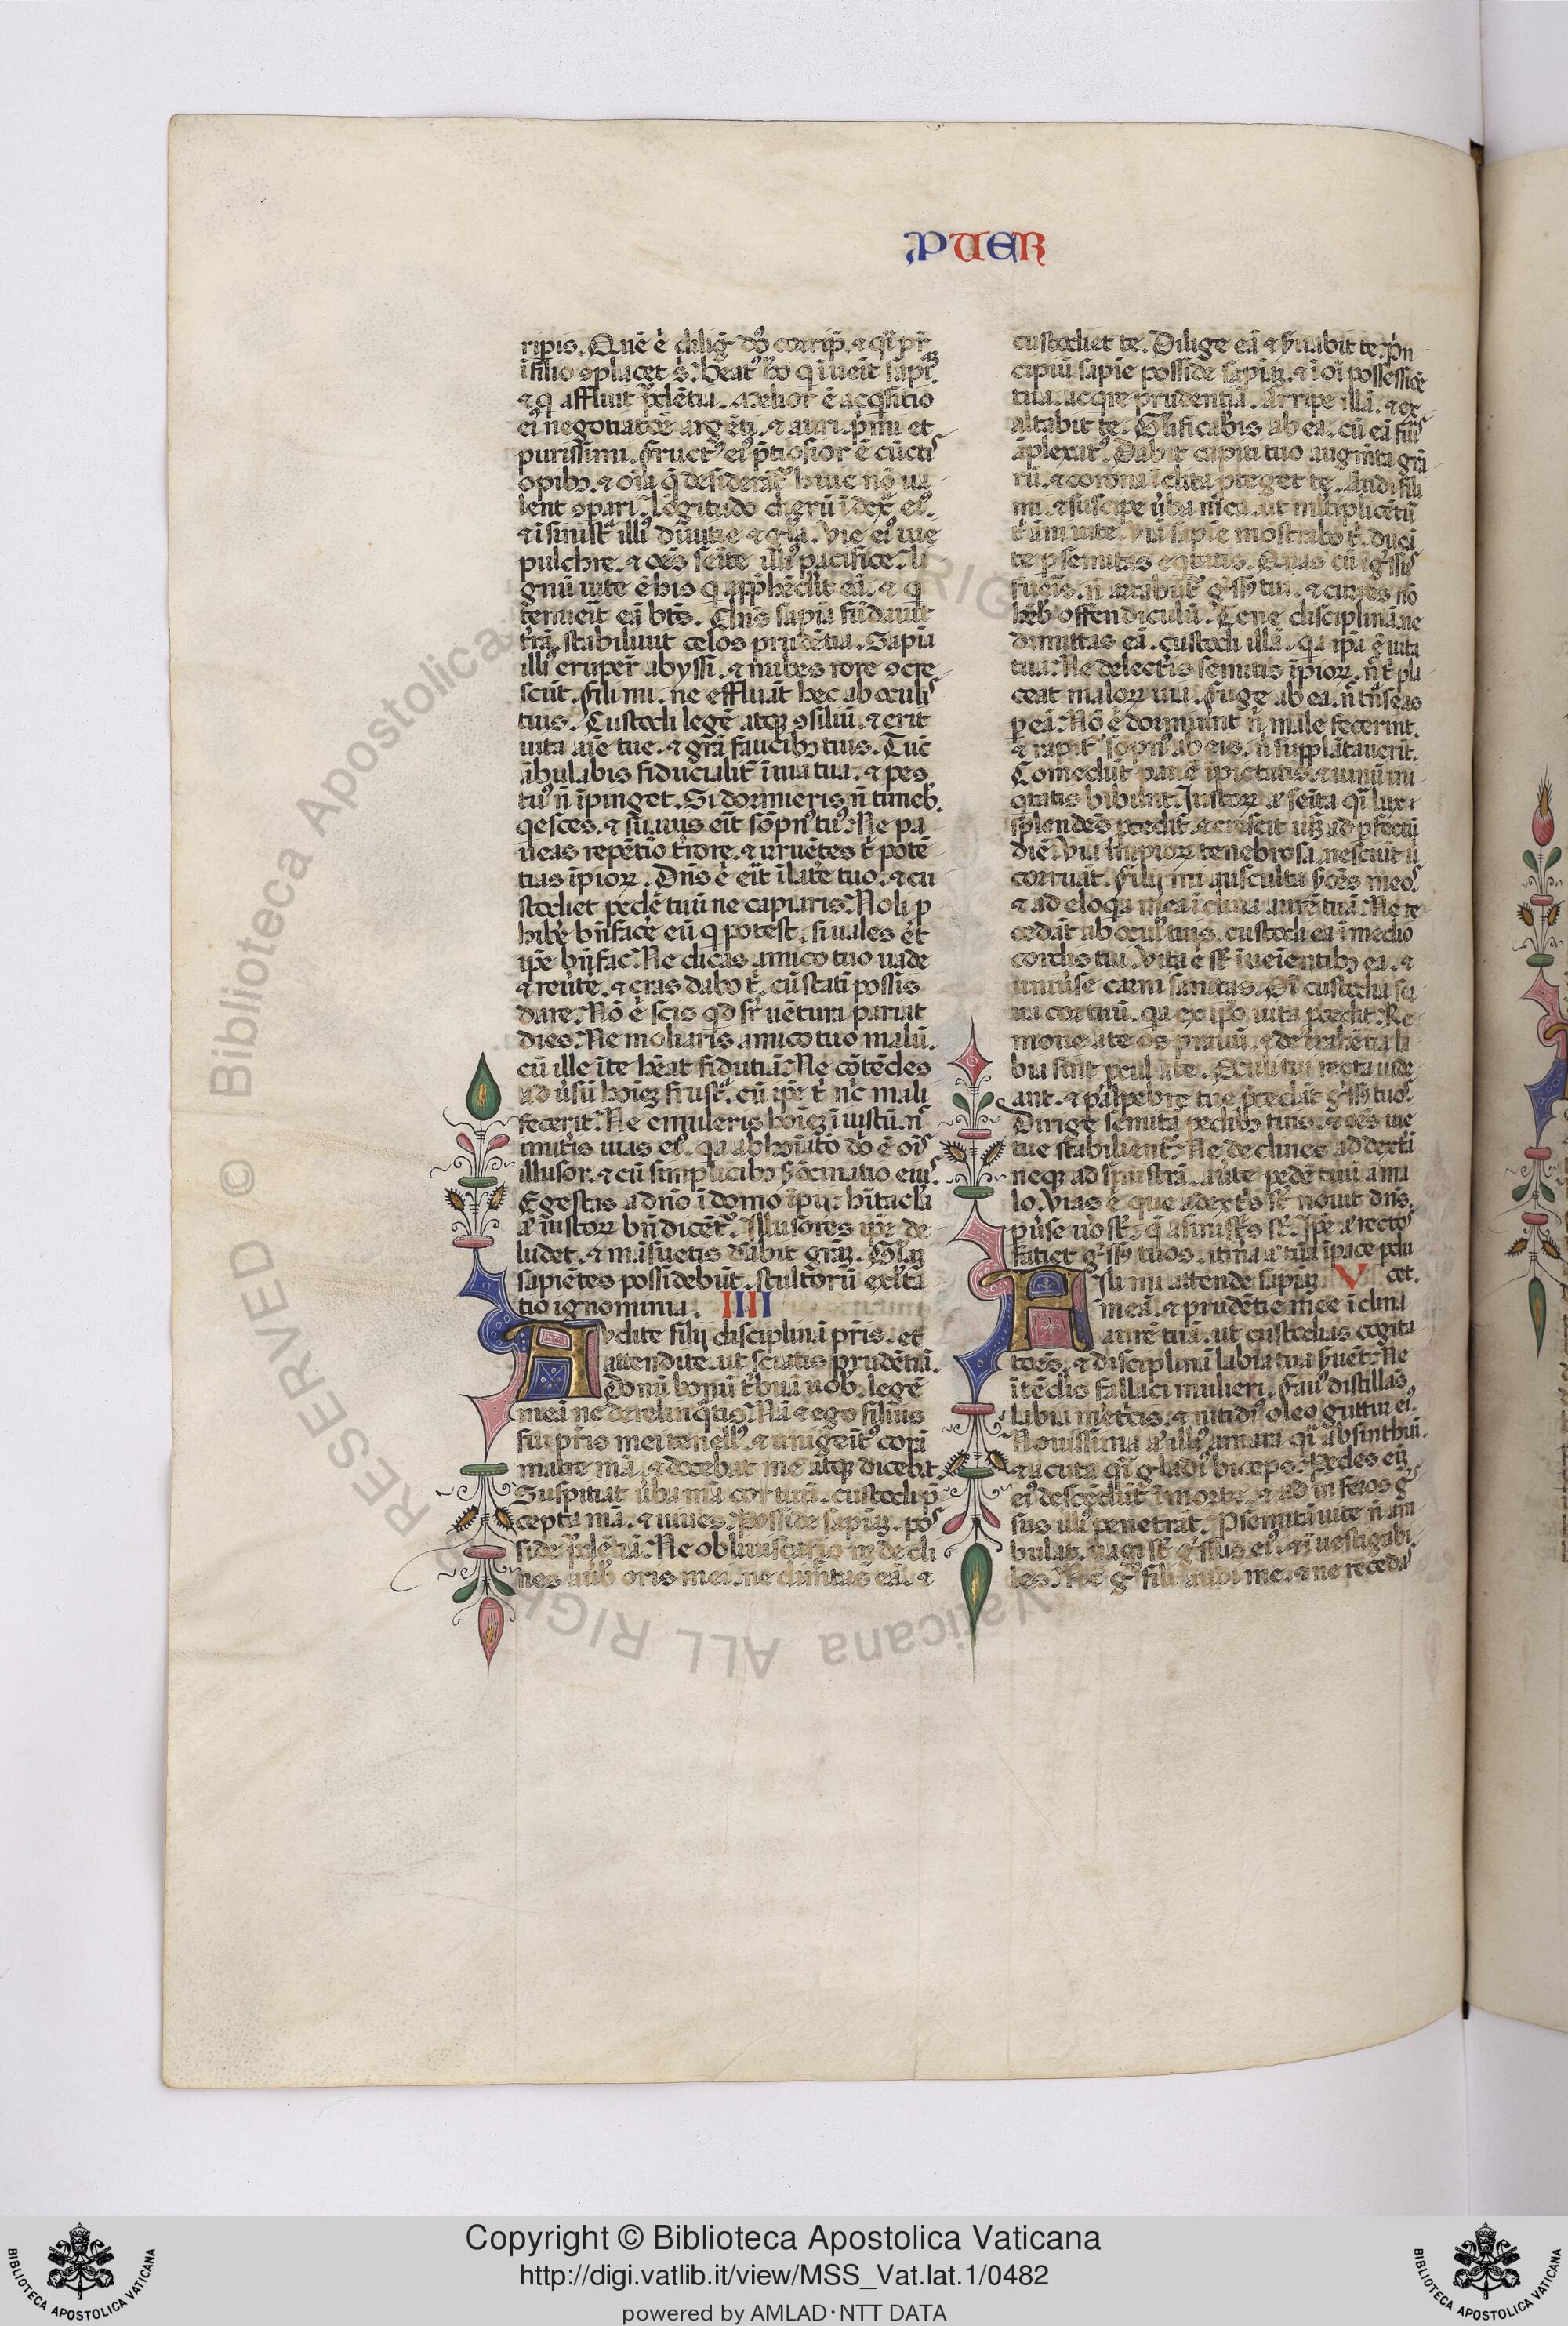 PUER
ripis. Quē ẽ dilig̃ dõs corrip̃. ⁊ q̃i pr̃
ĩ filio ꝯplacet s̃. beatꝰ hõ q ĩueit sapĩã
⁊ q affluit p̃dẽtia. Melior ẽ acq̃sitio
eiꝰ negotiatõe argẽti. ⁊ auri. p̃mi et
purissimi. Fructꝰ eiꝰ p̃tiosior ẽ cũctiˢ
opibꝫ. ⁊ oĩa q̃ desiderãt̃ huic nõ ua
lent ꝯpari. Lõgitudo dierũ ĩ dex̃ eiꝰ.
⁊ ĩ sinist̃ illiꝰ diuitie ⁊ gl̃a. Vie eiꝰ uie
pulchre. ⁊ oẽs semite illiꝰ pacifice. li
gnũ uite ẽ his q app̃hẽdĩt eã. ⁊ q
tenueĩt eã bt̃s. Dñs sapia fũdauit
t̃rã. stabiliuit celos prudẽtia. Sapia
illiꝰ eruper̃ abyssi. ⁊ nubes rore ꝯcre
scũt. Fili mi. ne effluãt hec ab oculiˢ
tuis. Custodi legẽ atqꝫ ꝯsiliũ. ⁊ erit
uita aĩe tue. ⁊ gr̃a faucibꝫ tuis. Tũc
ãbulabis fiducialit̃ ĩ uia tua. ⁊ pes
tuꝰ ñ ĩpinget. Si dormieris ñ timeb̃.
q̃esces. ⁊ suauis eĩt sõpnꝰ tuꝰ. Ne pa
ueas repẽtio t̃rore. ⁊ irruẽtes t̃ potẽ
tias ĩpioꝝ. Dñs ẽ eĩt ĩ late tuo. ⁊ cu
stodiet pedẽ tuũ ne capiaris. Noli p
hibẽ bñfacẽ eũ q potest. si uales et
ip̃e bñfac. Ne dicas amico tuo uade
⁊ reũte. ⁊ cras dabo t̃. cũ statĩ possis
dare. Nõ ẽ scis qd̃ sr̃ uẽtura pariat
dies. Ne moliaris amico tuo malũ.
cũ ille ĩ te hẽat fidutiã. Ne cõtẽdes
ad ũsũ hoĩẽꝫ frust̃. cũ ip̃e t̃ nc̃ mali
fecerit. Ne emuleris hoĩẽꝫ ĩiustũ. nˢ
imit̃is uias eiꝰ. qa abhoĩatõ dõ ẽ oĩs
illusor. ⁊ cũ simplicibꝫ s̃ocinatio eiuˢ.
Egestas a dño ĩ domo ĩpij: hĩtacl̃a
aͭ iustoꝝ bñdicẽt̃. Illusores ip̃e de
ludet. ⁊ mãsuetis dabit gr̃aꝫ. Gl̃aꝫ
sapiẽtes possidebũt. stultorũ exl̃ta
tio ignominia. IIII
Audite filij disciplinã pr̃is. et
attendite. ut sciatis prudẽtiã.
Donũ bonũ t̃buã uob̃. legẽ
meã ne derelinq̃tis. Nã ⁊ ego filius
fui pr̃is mei tenellꝰ. ⁊ unigeĩtꝰ corã
matre mã. ⁊ docebat me atqꝫ dicebat.
Suspitiat ũba mã cor tuũ. custodi p̃
cepta mã. ⁊ uiues. Posside sapiaꝫ. poˢ
side p̃dẽtiã. Ne obliuiscaris nꝫ decli
nes aũb̃ oris mei. ne dimitas eã. ⁊
custodiet te. Dilige eã ⁊ s̃uabit te. P̃n
cipiũ sapie posside sapiaꝫ. ⁊ ĩ oĩ possessiõe
tua. acq̃re prudentiã. Arripe illã. ⁊ ex
altabit te. Gl̃ificab̃is ab ea. cũ eã fũis
ãplexatꝰ. Dabit capiti tuo augm̃ta gr̃a
rũ. ⁊ corona ĩclita p̃teget te. Audi fili
mi. ⁊ suscipe ũba m̃ea. ut ml̃tiplicẽtũ
t̃ ãni uite. Viã sapie mõstrabo t̃. ducã
te p semitas eq̃tatis. Quas cũ ĩg̃ssuˢ
fueĩs. ñ artabũt̃ g̃ssꝰ tui. ⁊ cur̃es nõ
hẽb̃ offendiculũ. Tene disciplinã. ne
dimittas eã. custodi illã. qa ip̃a ẽ uita
tua. Ne delect̃is semitis ĩpioꝝ. n̄ t̃ pla
ceat maloꝝ uia. Fuge ab ea. n̄ tñseas
p eã. Nõ ẽ dormiunt n̄ male fecerint.
⁊ rapit̃ sõpnꝰ ab eis. n̄ supplãtauerit.
Comedũt panẽ ĩpietatis. ⁊ uinũ ini
q̃tatis bibunt. Iustoꝝ aͭ semita q̃i lux
splendẽs p̃cedit. ⁊ crescit usꝫ ad p̃fectũ
diẽ. Via ĩmpioꝝ tenebrosa. nesciũt u
corruãt. Fili mi ausculta s̃ões meoˢ
⁊ ad eloqa mea ĩclina aurẽ tuã. Ne re
cedãt ab ocul̃ tuis. custodi ea ĩ medio
cordis tui. Vita ẽ st̃ ĩueĩentibꝫ ea. ⁊
uniũse carni sanitas. Oĩ custodia s̃
ua cor tuũ. qa ex ip̃o uita p̃cedit. Re
moue a te os prauũ. ⁊ detrahẽtia la
bia sint p̃cul a te. Oculi tui recta uide
ant. ⁊ palpebre tue p̃cedãt g̃ssꝰ tuoˢ
Dirige semitã pedibꝫ tuis. ⁊ oẽs uie
tue stabilient̃. Ne declines ad dext̃ã
neqꝫ ad sinistrã. aũte pedẽ tuũ a ma
lo. Vias ẽ que a dext̃s st̃ nouit dñs.
p̃use uõ st̃. q̃ a sinist̃s st̃. Ip̃e aͭ rectoˢ
faciet g̃ssꝰ tuos. itina aͭ tua ĩ pace p̃du
Fili mi attende sapiaꝫ V cet.
meã. ⁊ prudẽtie mee ĩclina
aurẽ tuã. ut custodias cogita
tões. ⁊ disciplinã labia tua s̃uẽt. Ne
ĩtẽdis fallaci mulieri. Fauꝰ distillãs
labia mẽtcis. ⁊ nitidiꝰ oleo guttur eiꝰ.
Nouissima aͭ illiꝰ amara q̃i absinthiũ.
⁊ acuta q̃i gladiꝰ biceps. Pedes eiꝰ
eiꝰ descẽdũt ĩ morte. ⁊ ad inferos g̃
sus illiꝰ penetrãt. P semitã uite ñ am
bulãt. uagi st̃ g̃ssus eiꝰ. ⁊ ĩuestigabi
les. Nc̃ g̃ fili audi me. ⁊ ne recedaˢ
© Biblioteca Apostolica Vaticana ALL RIGHTS RESERVED
Copyright © Biblioteca Apostolica Vaticana
http://digi.vatlib.it/view/MSS_Vat.lat.1/0482
powered by AMLAD·NTT DATA
BIBLIOTECA APOSTOLICA VATICANA
BIBLIOTECA APOSTOLICA VATICANA